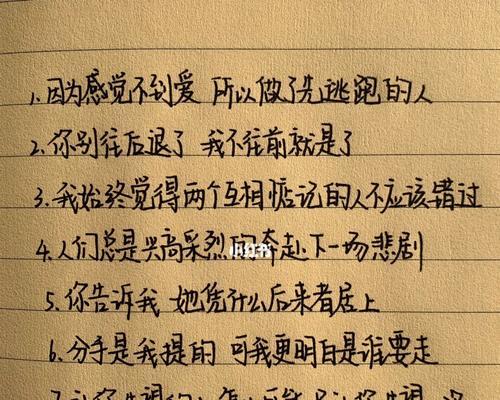 1.因为感觉不到爱 所以做了先逃跑的人
2.你别往后退了 我不往前就是了
3.我始终觉得两个互相惦记的人不应该错过
4.人们总是兴高采烈的奔赴下一场悲剧
小红书
5.你告诉我 她凭什么后来者居上
6.分手是我提的 可我更明白是谁要走